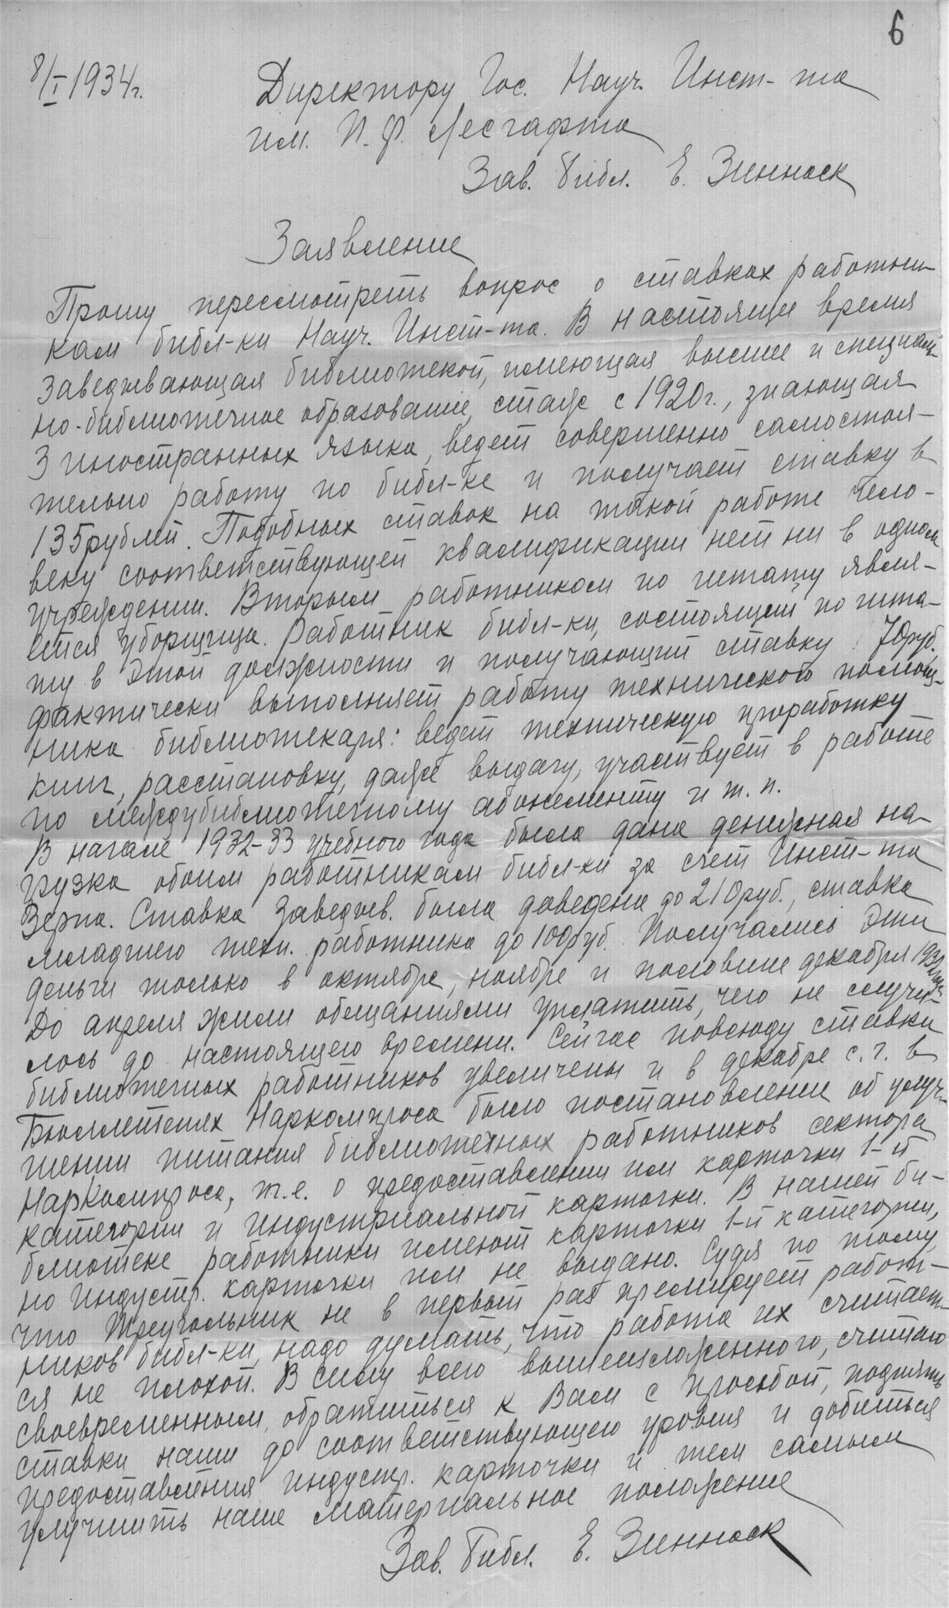 6
8/I 1934г.
Директору Гос. Науч. Инст-та
им. П. Ф. Лесгафта
Зав. библ. Е. Зинноск
Заявление
Прошу пересмотреть вопрос о ставках работни-
кам библ-ки Науч. Инст-та. В настоящее время
заведывающая библиотекой, имеющая высшее и специаль-
но-библиотечное образование, стаж с 1920г., знающая
3 иностранных языка, ведет совершенно самостоя-
тельно работу по библ-ке и получает ставку в
135 рублей. Подобных ставок на такой работе чело-
веку соответствующей квалификации нет ни в одном
учреждении. Вторым работником по штату явля-
ется уборщица. Работник библ-ки, состоящий по шта-
ту в этой должности и получающий ставку 70руб.
фактически выполняет работу технического помощ-
ника библиотекаря: ведет техническую проработку
книг, расстановку, даже выдачу, участвует в работе
по междубиблиотечному абонементу и т. п.
В начале 1932-33 учебного года была дана денежная на-
грузка обоим работникам библ-ки за счет Инст-та
Зерна. Ставка Заведыв. была доведена до 210руб., ставка
младшего техн. работника до 100руб. Получались эти
деньги только в октябре, ноябре и половине декабря 1932
До апреля жили обещаниями уплатить, чего не случи-
лось до настоящего времени. Сейчас повсюду ставки
библиотечных работников увеличены и в декабре с. г. в
Бюллетенях Наркомпроса было постановление об улуч-
шении питания библиотечных работников сектора
Наркомпроса, т. е. о предоставлении им карточки 1-й
категории и индустриальной карточки. В нашей би-
блиотеке работники имеют карточки 1-й категории,
но индустр. карточки им не выдано. Судя по тому,
что треугольник не в первый раз премирует работ-
ников библ-ки, надо думать, что работа их считает-
ся не плохой. В силу всего вышеизложенного, считаю
своевременным, обратиться к Вам с просьбой, поднять
ставки наши до соответствующего уровня и добиться
предоставления индустр. карточки и тем самым
улучшить наше материальное положение
Зав. библ. Е. Зинноск